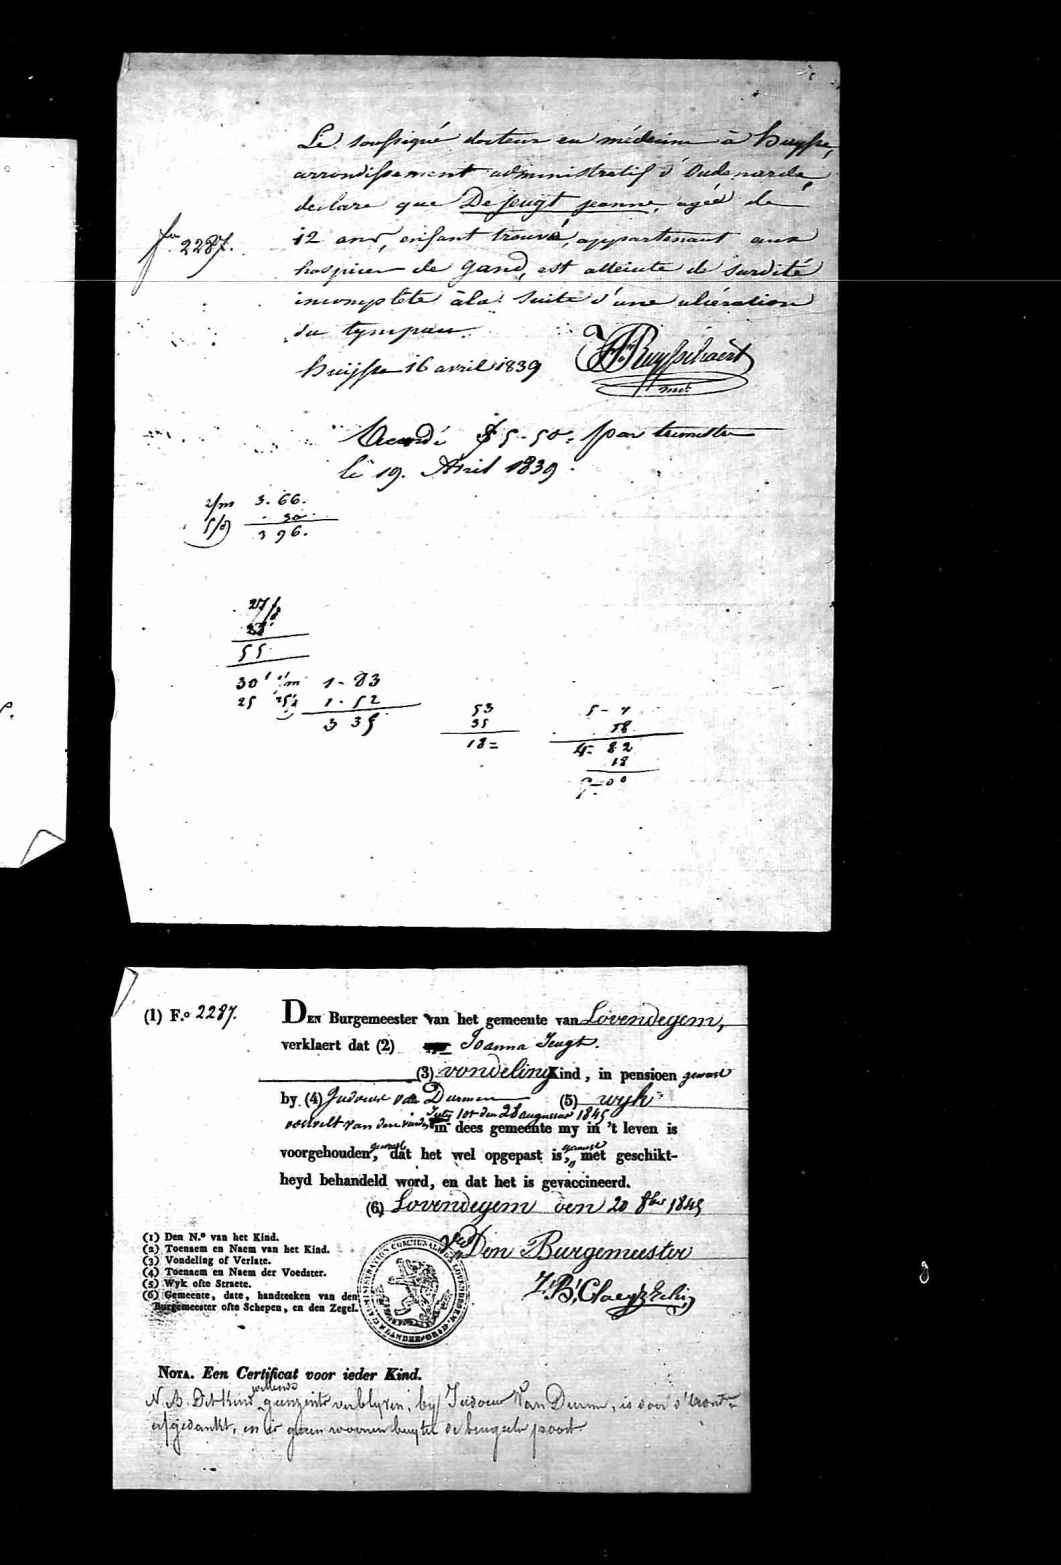 Le soussigné docteur en médecine à huysse,
arrondissement administratif d'Oudenarde
déclare que De jeugt jeanne, agée de
fo 2287.
12 ans, enfant trouvé, appartenant aux
hospices de gand, est atteinte de surdité
incomplète à la suite d'une ulcération
du tympan.
huysse 16 avril 1839
Accordé 5-50 par trimestre
le 19. Avril 1839.
2/m 3.66.
30
3 96.
27/
28
55
30 1/m 1-83
25 1-52
3 35
53
35
18=
5-
18
4= 82
18
5-00
(1) F.o 2287.
DEN Burgemeester van het gemeente van Lovendegem,
verklaert dat (2) Joanna Jeugt.
(3) vondeling Kind, in pensioen geweest
by (4) Judocus van Durmen (5) wyk
July tot den 28 augustus 1845
in dees gemeente my in 't leven is
voorgehouden, dat het wel opgepast is, met geschikt-
heyd behandeld word, en dat het is gevaccineerd.
(6) Lovendegem den 20 8ber 1845
Den Burgemeester
(1) Den N.o van het Kind.
(2) Toenaem en Naem van het Kind.
(3) Vondeling of Verlate.
(4) Toenaem en Naem der Voedster.
(5) Wyk ofte Straete.
(6) Gemeente, date, handteeken van den
Burgemeester ofte Schepen, en den Zegel.
NOTA. Een Certificat voor ieder Kind.
N.B. Dit Kind willende verblyven, by Judocus Van Durme, is door
afgedankt, en is gaen woonen buyten de brugsche poort